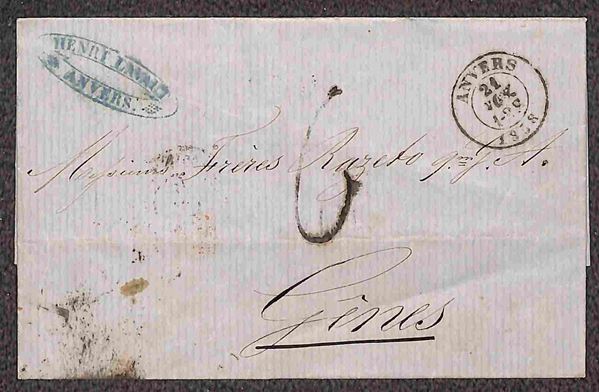 HENRI
ANVERS.
ANVERS
21
1858
6
Messieurs Frères Razeto qm. G. A.
Gênes